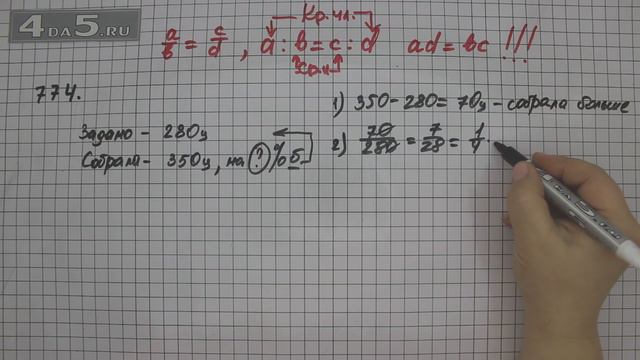 4DA5.RU
Кр.чл.
a/b = c/d , a : b = c : d ad = bc !!!
ср.чл.
774.
Задано - 280ц
Собрала - 350ц, на ? % б.
1) 350 - 280 = 70ц - собрала больше
2) 70/280 = 7/28 = 1/4 ·